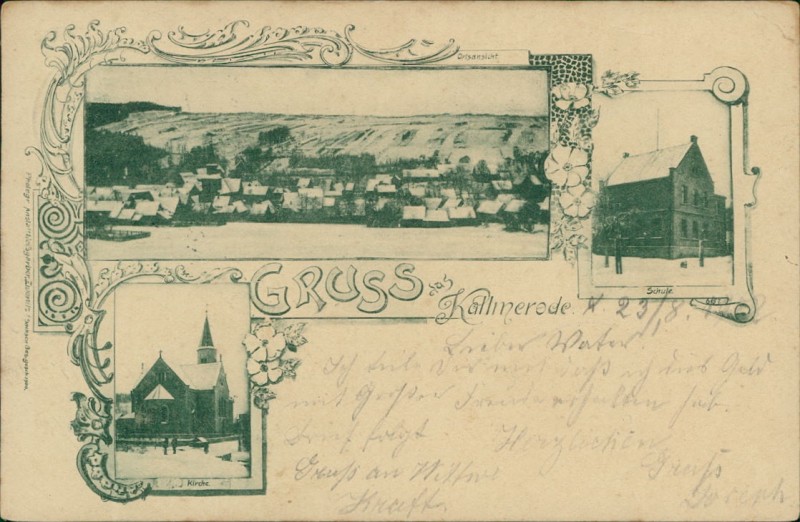 Ortsansicht.
Schule.
GRUSS aus Kallmerode.
K. 23/8.
Lieber Vater
Ich teile Dir mit daß ich dies Geld
mit Großer Freude erhalten hab.
Brief folgt Herzlichen
Gruß an Gruss
Kraft. Joseph
Kirche.